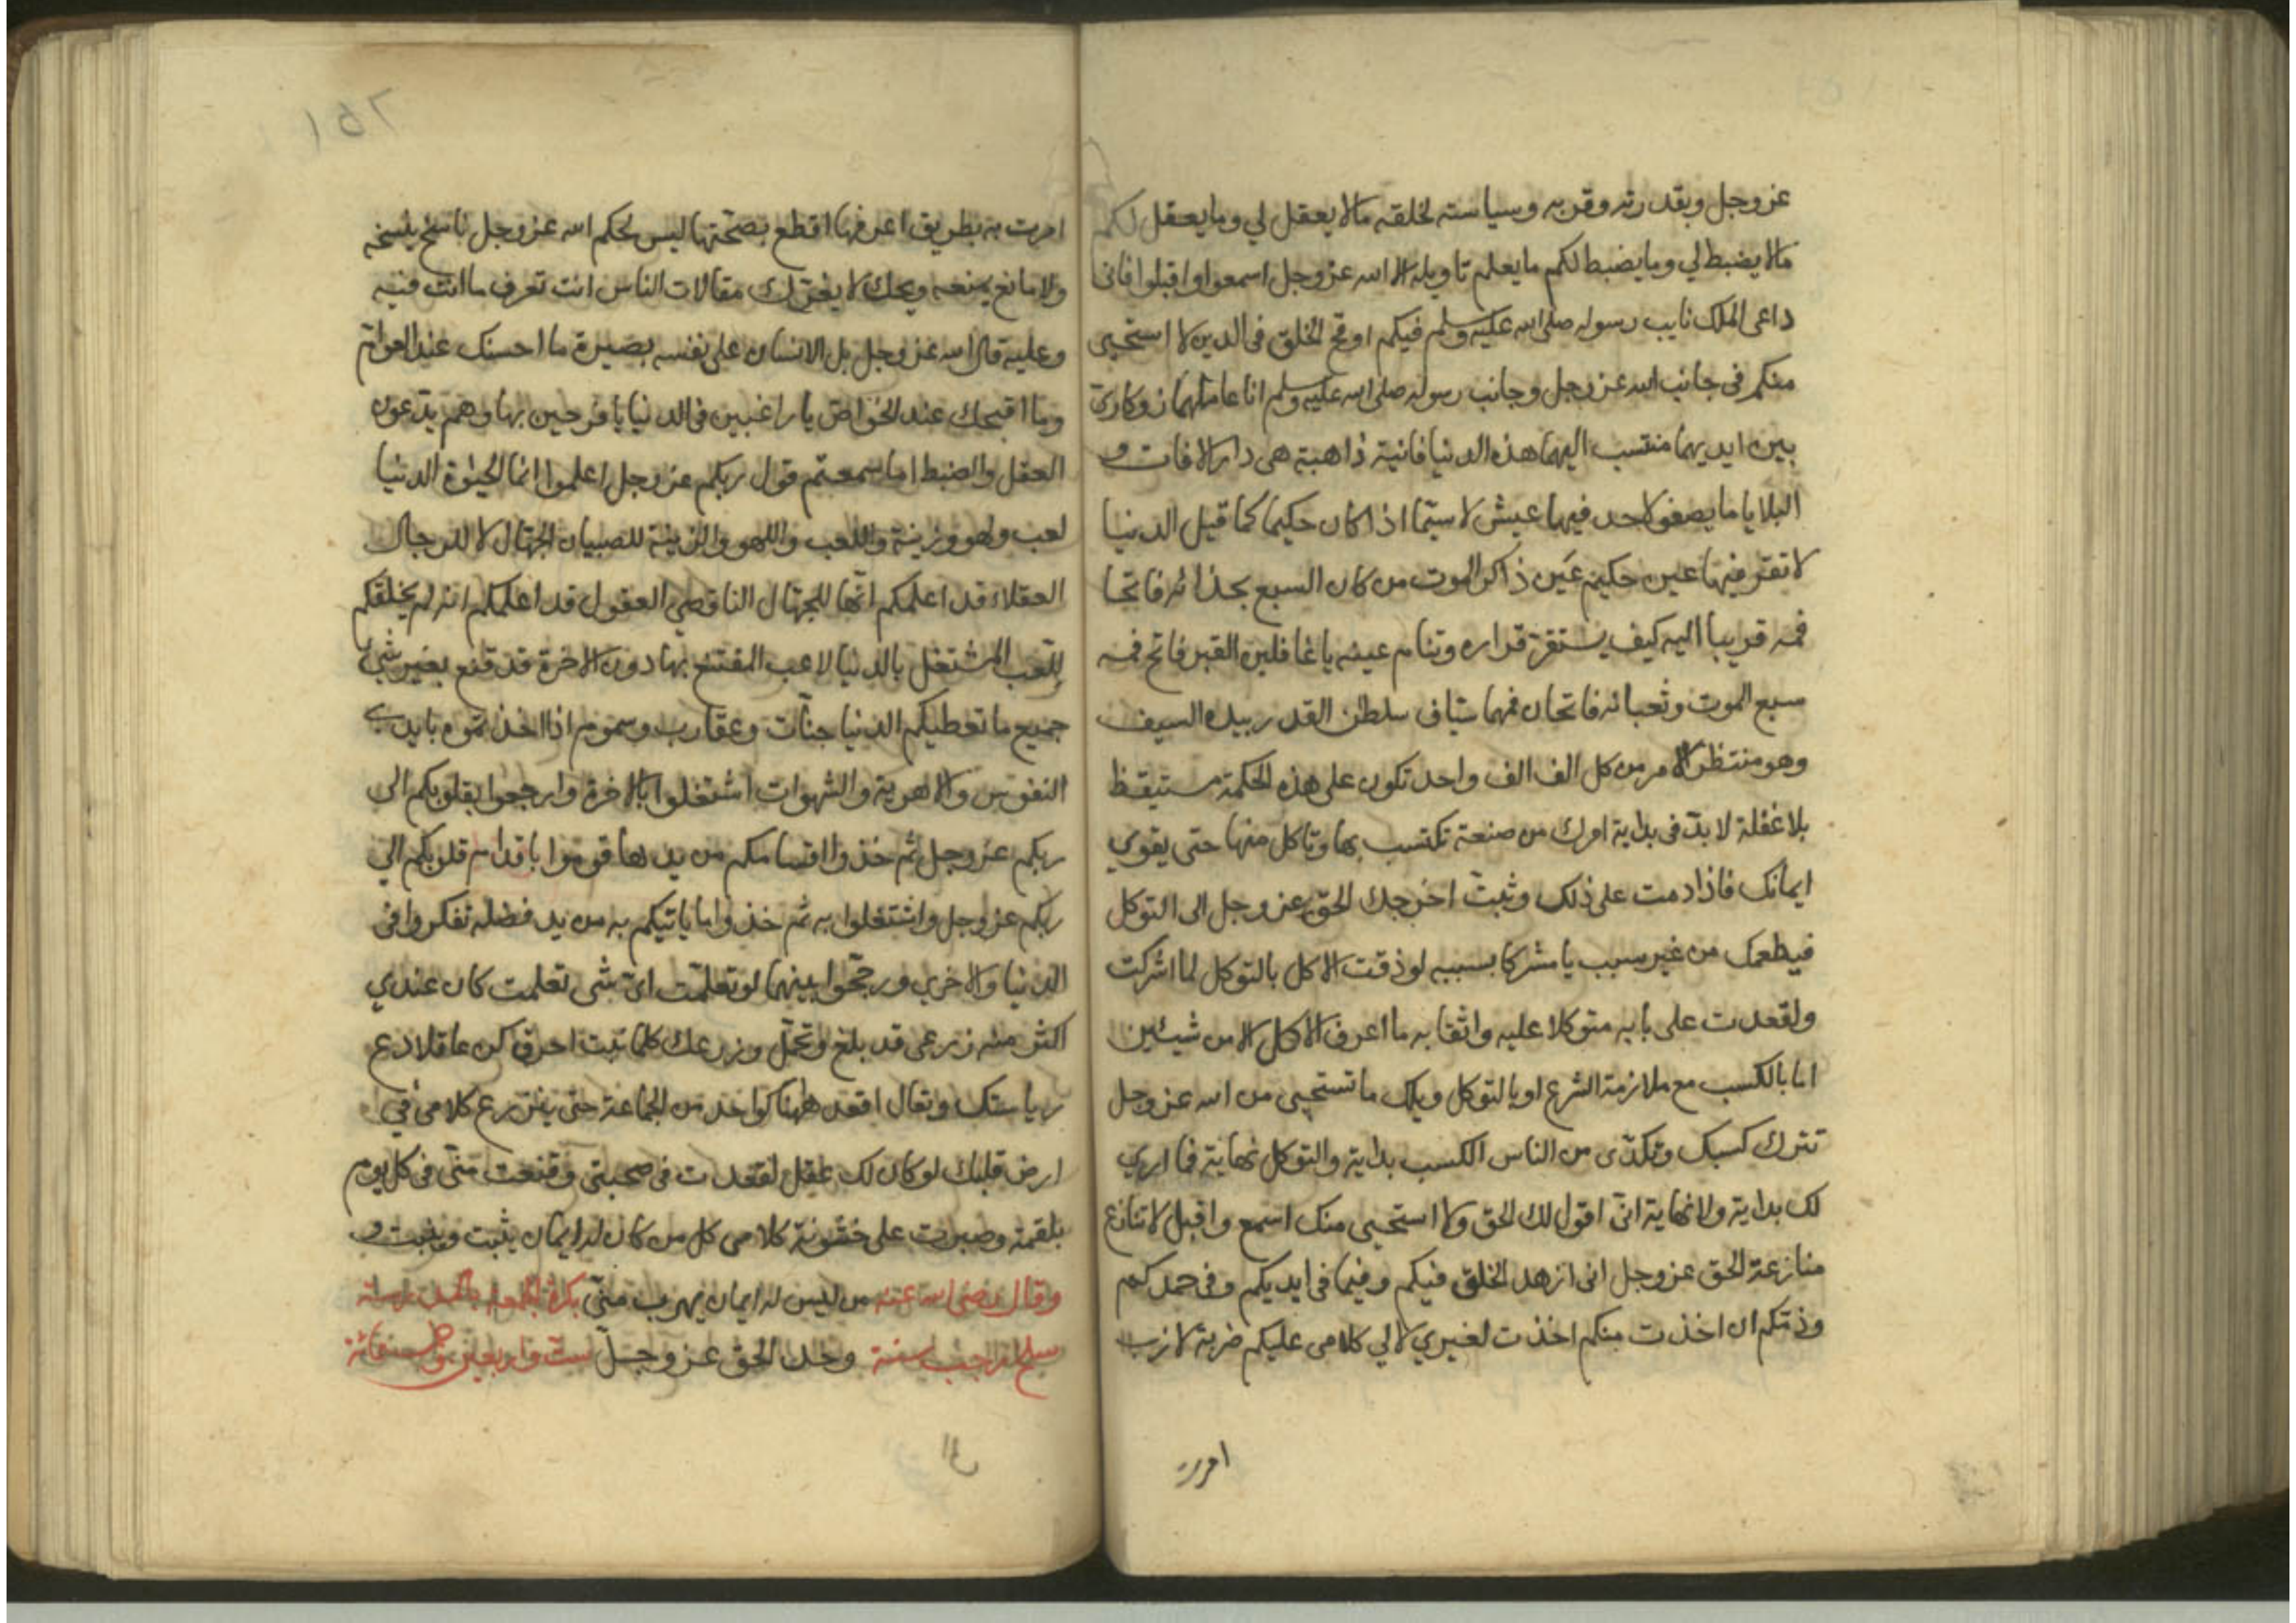 عز وجل وبقدرته وقربه وسياسته لخلقه مالا يعقل لي وما يعقل لكم
مالا يضبط لي وما يضبط لكم ما يعلم تاويله الا الله عز وجل اسمعوا واقبلوا فاني
داعي الملك نايب رسوله صلى الله عليه وسلم فيكم اوقح الخلق في الدين لا استحيي
منكم في جانب الله عز وجل وجانب رسوله صلى الله عليه وسلم انا عاملهما زوكاري
بين ايديهما منتسب اليهما هذه الدنيا فانية ذاهبة هي دار الافات و
البلايا ما يصفو لاحد فيها عيش لا سيما اذا كان حكيما كما قيل الدنيا
لا تقر فيها عين حكيم عين ذاكر الموت من كان السبع بحذائه فاتحا
فمه قريبا اليه كيف يستقر قراره وتنام عينه يا غافلين القبر فاتح فمه
سبع الموت وثعبانه فاتحان فمهما سياف سلطن القدر بيده السيف
وهو منتظر الامر من كل الف الف واحد تكون على هذه الحكمة مستيقظ
بلا غفلة لا بد في بداية امرك من صنعة تكتسب بها وتاكل منها حتى يقوي
ايمانك فاذا دمت على ذلك وثبت اخرجك الحق عز وجل الى التوكل
فيطعمك من غير سبب يا مشركا بسببه لو ذقت الاكل بالتوكل لما اشركت
ولقعدت على بابه متوكلا عليه واثقا به ما اعرف الاكل الا من شيئين
اما بالكسب مع ملازمة الشرع او بالتوكل ويلك ما تستحيي من الله عز وجل
تترك كسبك وتكدى من الناس الكسب بداية والتوكل نهاية فما اري
لك بداية ولا نهاية اني اقول لك الحق ولا استحيي منك اسمع واقبل لا تنازع
منازعة الحق عز وجل اني ازهد الخلق فيكم وفيما في ايديكم وفي حمدكم
وذمكم ان اخذت منكم اخذت لغيري لا لي كلامي عليكم ضربة لازب
امرت
امرت به بطريق اعرفها اقطع بصحتها ليس لحكم الله عز وجل ناسخ ينسخه
ولا مانع يمنعه ويحك لا يغرك مقالات الناس انت تعرف ما انت فيه
وعليه قال الله عز وجل بل الانسان على نفسه بصيرة ما احسنك عند العوام
وما اقبحك عند الخواص يا راغبين في الدنيا يا فرحين بها وهم يدعون
العقل والضبط اما سمعتم قول ربكم عز وجل اعلموا انما الحيوة الدنيا
لعب ولهو وزينة واللعب واللهو والزينة للصبيان الجهال لا للرجال
العقلاء قد اعلمكم انها للجهال الناقصي العقول قد اعلمكم انه لم يخلقكم
للعب المشتغل بالدنيا لاعب المقتنع بها دون الاخرة قد قنع بغير شي
جميع ما تعطيكم الدنيا حيات وعقارب وسموم اذا اخذتموه بايدي
النفوس والاهوية والشهوات اشتغلوا بالاخرة وارجعوا بقلوبكم الى
ربكم عز وجل ثم خذوا اقسامكم من يدها قوموا باقدام قلوبكم الي
ربكم عز وجل واشتغلوا به ثم خذوا ما ياتيكم به من يد فضله تفكروا في
الدنيا والاخري ورجحوا بينهما لو تعلمت اي شي تعلمت كان عندي
اكثر منه زرعي قد بلغ وتحمل وزرعك كلما نبت احرق كن عاقلا دع
رياستك وتعال اقعد ههنا كواحد من الجماعة حتى ينزرع كلامي في
ارض قلبك لو كان لك عقل لقعدت في صحبتي وقنعت مني في كل يوم
بلقمة وصبرت على خشونة كلامي كل من كان له ايمان يثبت وينبت و
وقال رضي الله عنه من ليس له ايمان يهرب مني بكرة الجمعة بالمدرسة
سلخ رجب سنة وحد الحق عز وجل ست واربعين وخمسمائة